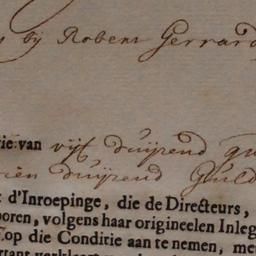 bij Robert Gerrard
tie van vijf duijzend gu
tien duijzend Guld
t d'Inroepinge, die de Directeurs,
ooren, volgens haar origineelen Inleg
op die Conditie aan te nemen, me